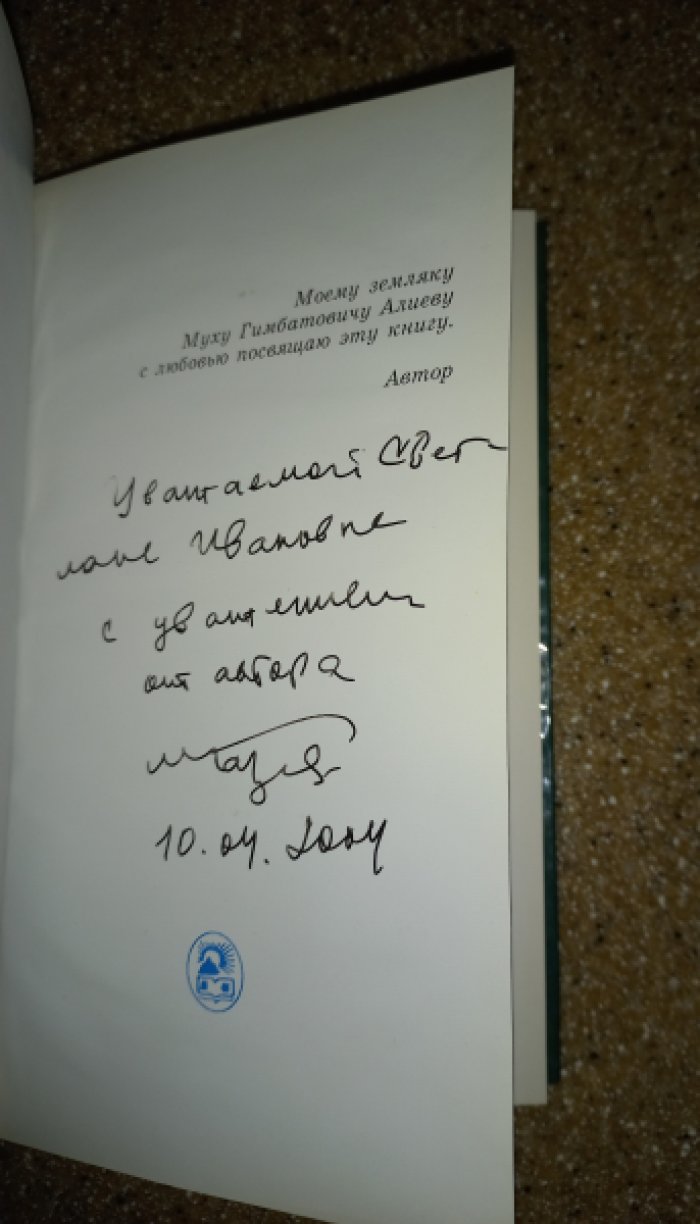 Моему земляку
Муху Гимбатовичу Алиеву
с любовью посвящаю эту книгу.
Автор
Уважаемой Свет-
лане Ивановне
с уважением
от автора
10.04.2004